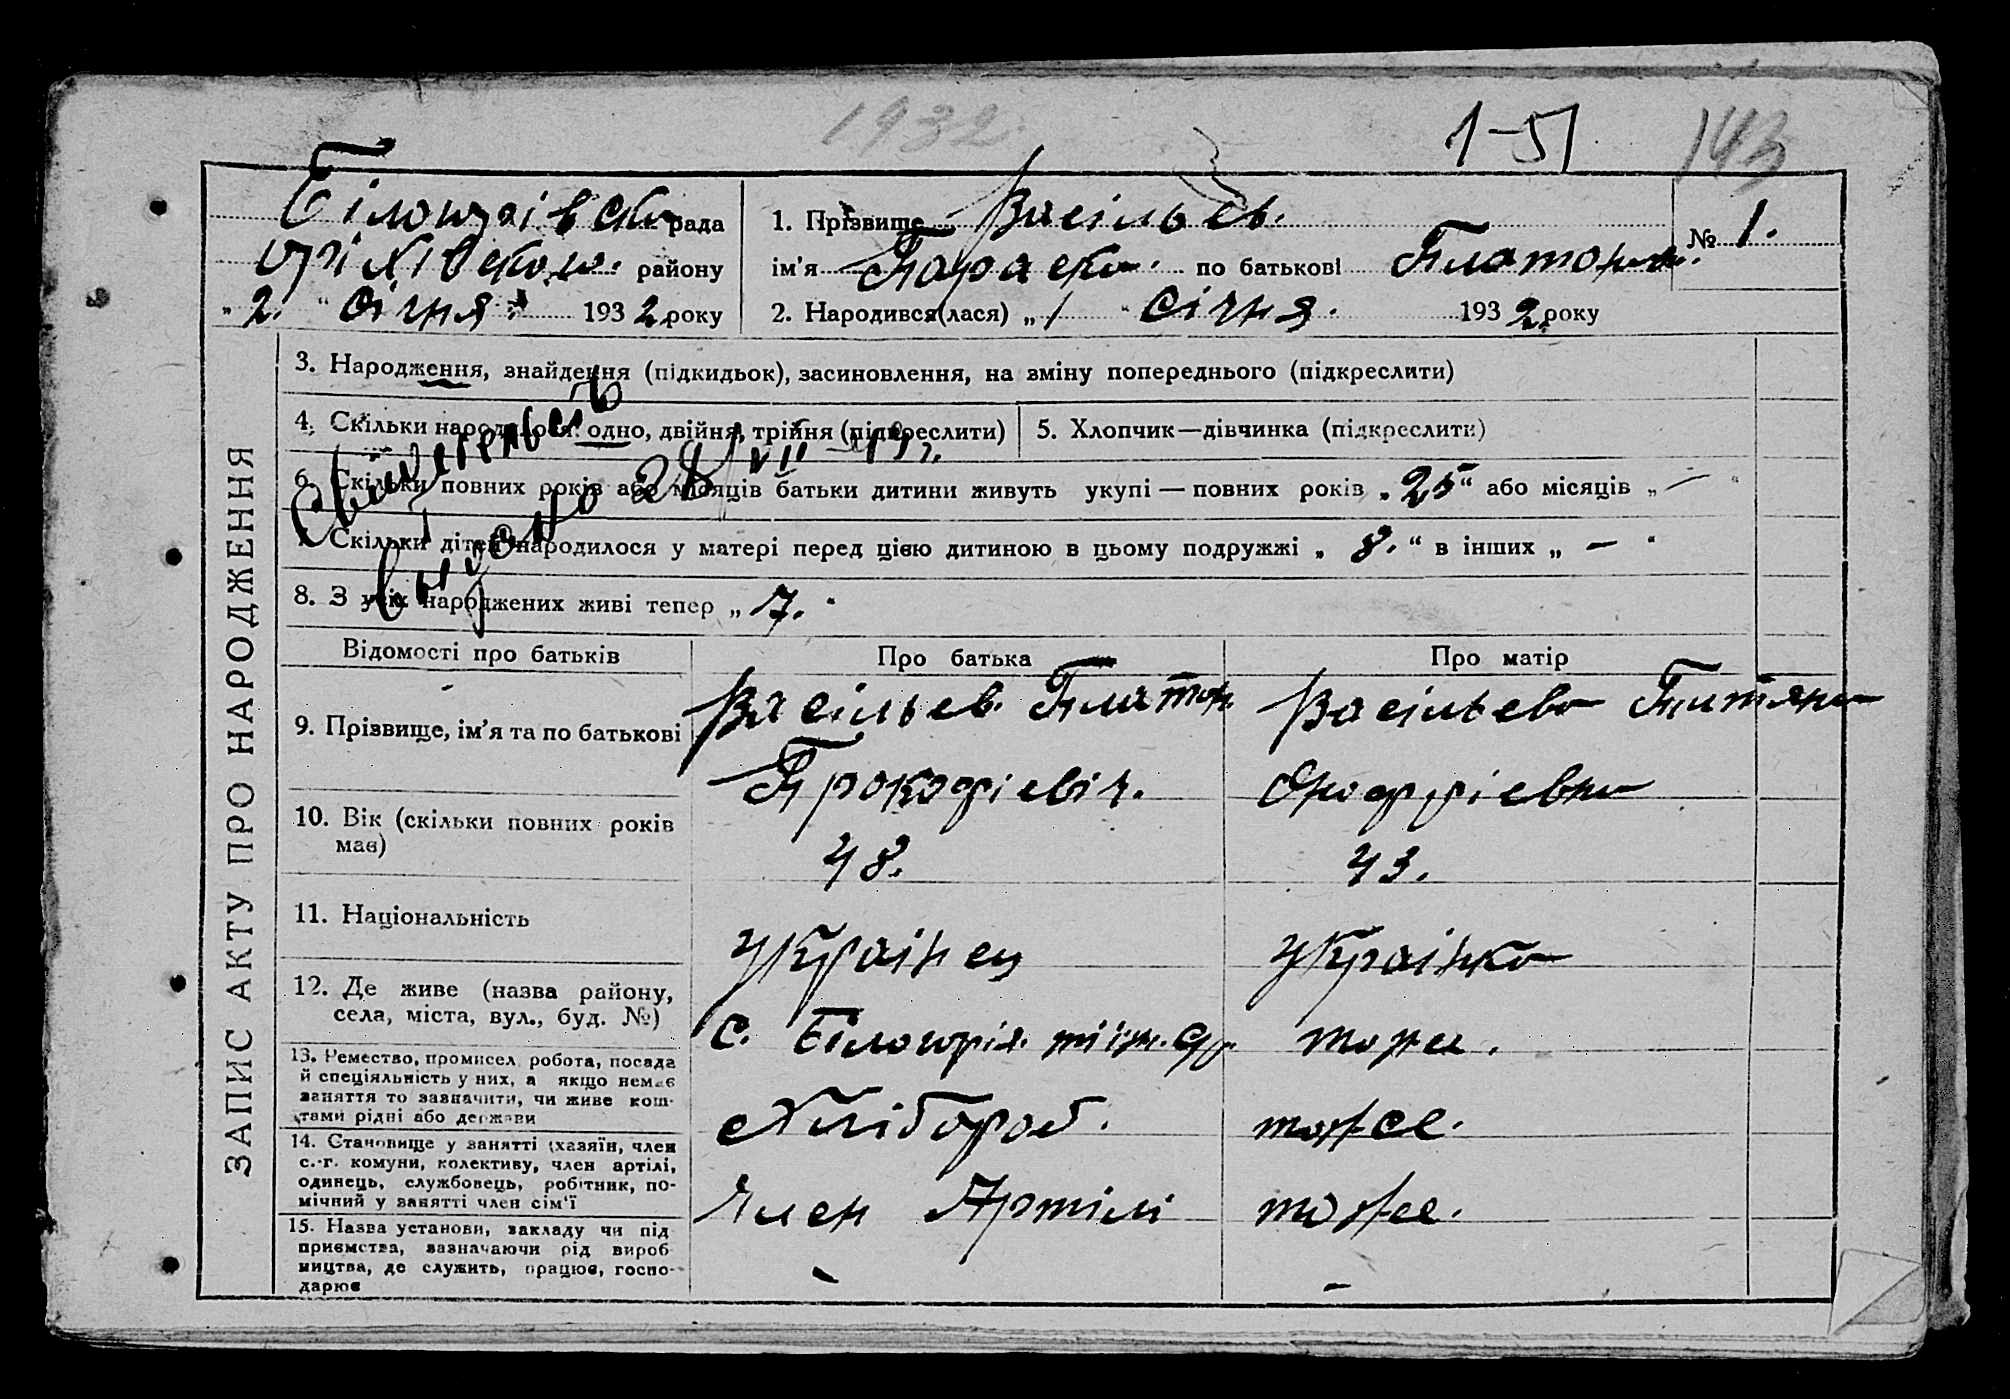 1932
1-51
143
Білогирівська рада
Оріхівского району
"2." Січня 1932 року
1. Прізвище Васільєв.
ім'я Параско по батькові Платонов.
№ 1.
2. Народився(лася) „1" Січня. 1932 року
ЗАПИС АКТУ ПРО НАРОДЖЕННЯ
3. Народження, знайдення (підкидьок), засиновлення, на зміну попереднього (підкреслити)
4. Скільки народилося: одно, двійня, трійня (підкреслити)
5. Хлопчик—дівчинка (підкреслити)
6. Скільки повних років або місяців батьки дитини живуть укупі — повних років „25" або місяців „—"
7. Скільки дітей народилося у матері перед цією дитиною в цьому подружжі „8." в інших „—"
8. З усіх народжених живі тепер „7."
Выдано 28/VII
Відомості про батьків
Про батька
Про матір
9. Прізвище, ім'я та по батькові
Васільев. Платон
Прокофіевіч.
Васільева Титяна
Онофріевна
10. Вік (скільки повних років має)
48.
43.
11. Національність
Українец
Українка
12. Де живе (назва району,
села, міста, вул., буд. №)
с. Білогорія
тоже.
13. Ремество, промисел, робота, посада
й спеціяльність у них, а якщо немає
заняття то зазначити, чи живе кош-
тами рідні або держави
Хлібороб.
тоже.
14. Становище у занятті (хазяїн, член
с.-г. комуни, колективу, член артілі,
одинець, службовець, робітник, по-
мічний у занятті член сім'ї
Член Артілі
тоже.
15. Назва установи, закладу чи під
приємства, зазначаючи рід вироб
ництва, де служить, працює, госпо-
дарює
-
-